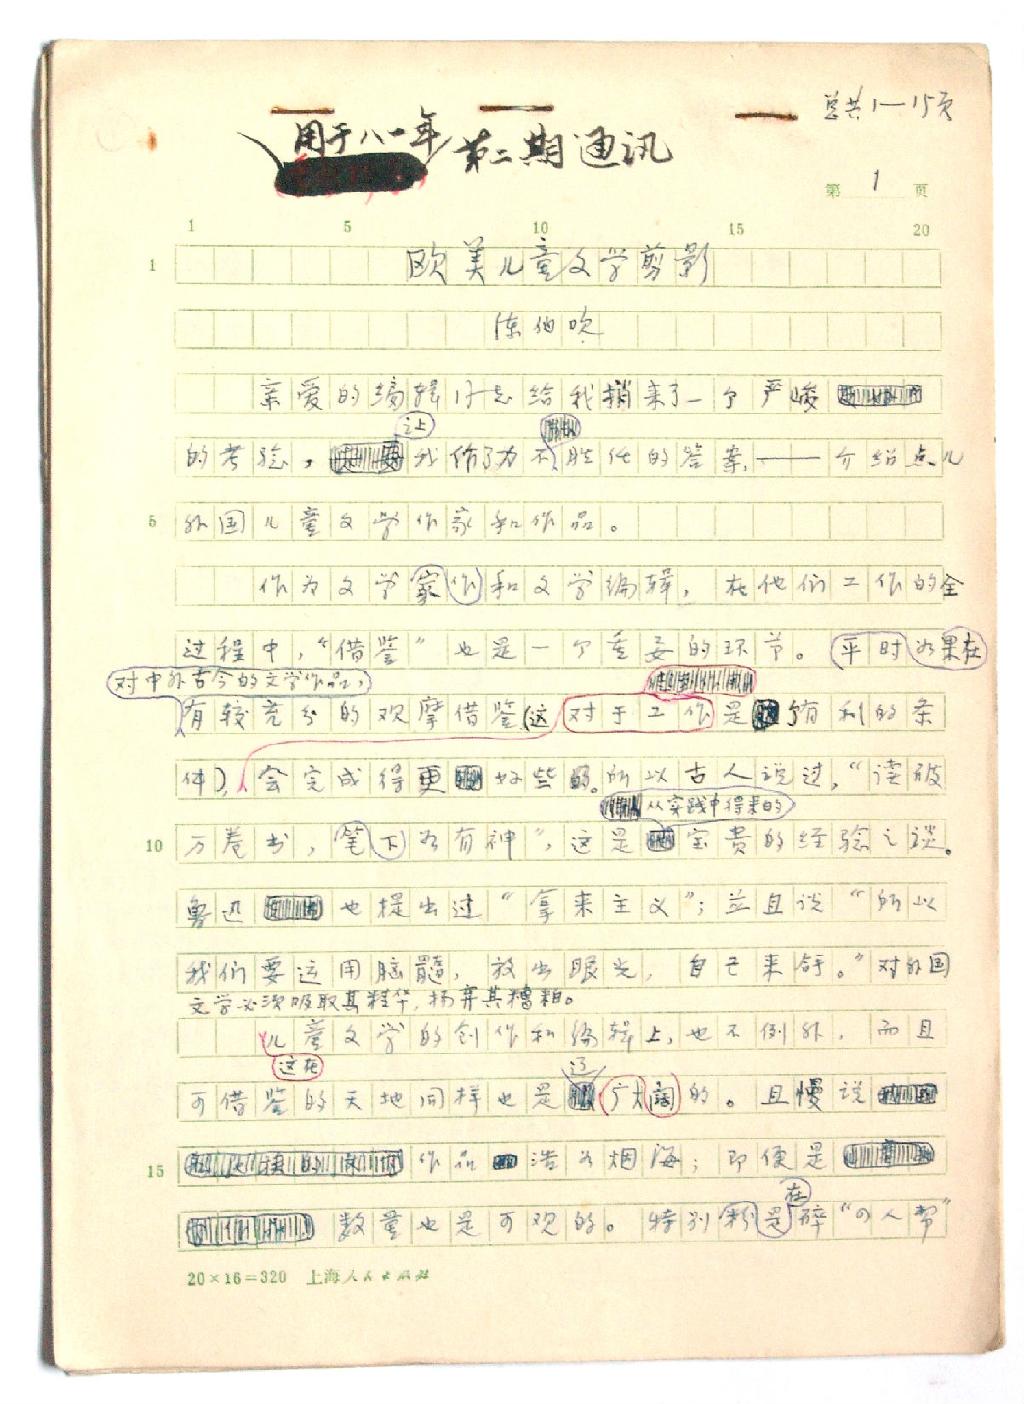 总共1—15页
用于八一年第二期通讯
第 1 页
1 5 10 15 20
1 欧美儿童文学剪影
陈伯吹
亲爱的编辑同志给我捎来了一个严峻
之上
的考验，我作了力不胜任的答案，——介绍点儿
5 外国儿童文学作家和作品。
作为文学家作和文学编辑，在他们工作的全
过程中，“借鉴”也是一个重要的环节。平时如果在
对中外古今的文学作品，
有较充分的观摩借鉴(这对于工作是有利的条
件)，会完成得更好些的。所以古人说过，“读破
从实践中得来的
10 万卷书，笔下如有神”，这是宝贵的经验之谈。
鲁迅也提出过“拿来主义”；並且说“所以
我们要运用脑髓，放出眼光，自己来拿。”对外国
文学必须吸取其精华，扬弃其糟粕。
儿童文学的创作和编辑上，也不例外，而且
这在
辽
可借鉴的天地同样也是广大阔的。且慢说
15 作品浩如烟海；即便是
在
数量也是可观的。特别粉是碎“四人帮”
20×16=320 上海人民出版社